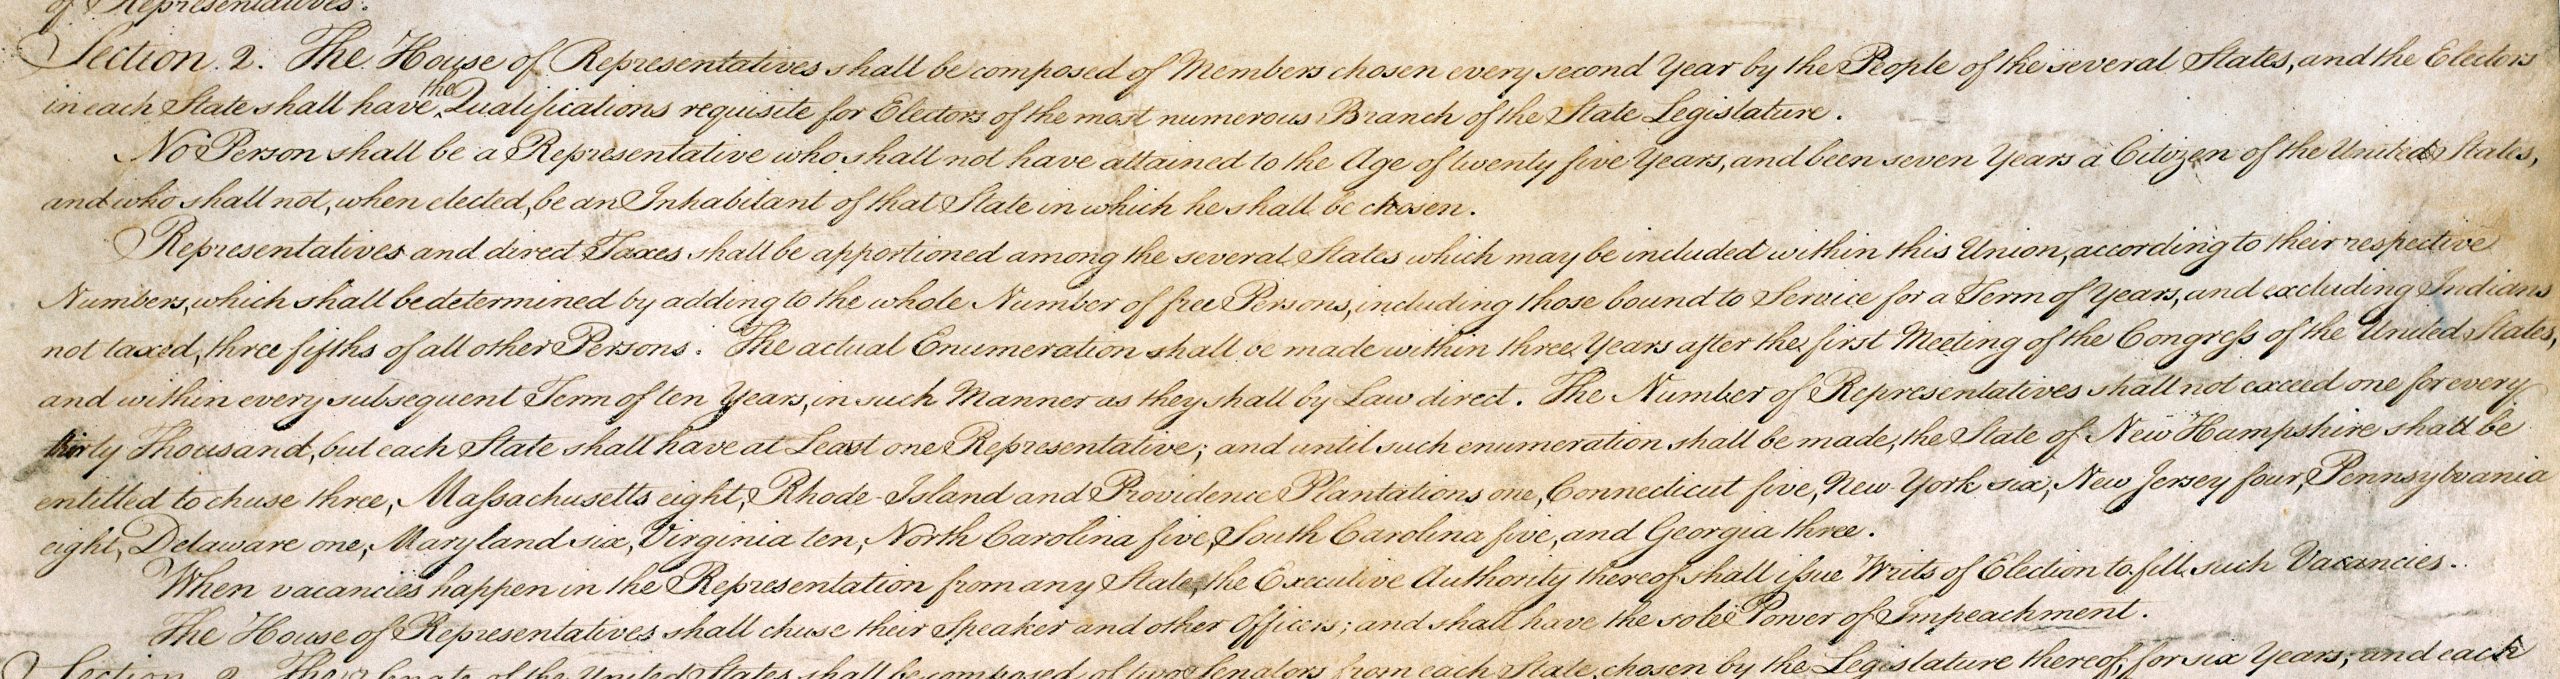 of Representatives.
Section. 2. The House of Representatives shall be composed of Members chosen every second Year by the People of the several States, and the Electors
in each State shall have the Qualifications requisite for Electors of the most numerous Branch of the State Legislature.
No Person shall be a Representative who shall not have attained to the Age of twenty five Years, and been seven Years a Citizen of the United States,
and who shall not, when elected, be an Inhabitant of that State in which he shall be chosen.
Representatives and direct Taxes shall be apportioned among the several States which may be included within this Union, according to their respective
Numbers, which shall be determined by adding to the whole Number of free Persons, including those bound to Service for a Term of Years, and excluding Indians
not taxed, three fifths of all other Persons. The actual Enumeration shall be made within three Years after the first Meeting of the Congress of the United States,
and within every subsequent Term of ten Years, in such Manner as they shall by Law direct. The Number of Representatives shall not exceed one for every
thirty Thousand, but each State shall have at Least one Representative; and until such enumeration shall be made, the State of New Hampshire shall be
entitled to chuse three, Massachusetts eight, Rhode-Island and Providence Plantations one, Connecticut five, New-York six, New Jersey four, Pennsylvania
eight, Delaware one, Maryland six, Virginia ten, North Carolina five, South Carolina five, and Georgia three.
When vacancies happen in the Representation from any State, the Executive Authority thereof shall issue Writs of Election to fill such Vacancies.
The House of Representatives shall chuse their Speaker and other Officers; and shall have the sole Power of Impeachment.
Section. 3. The Senate of the United States shall be composed of two Senators from each State, chosen by the Legislature thereof, for six Years; and each